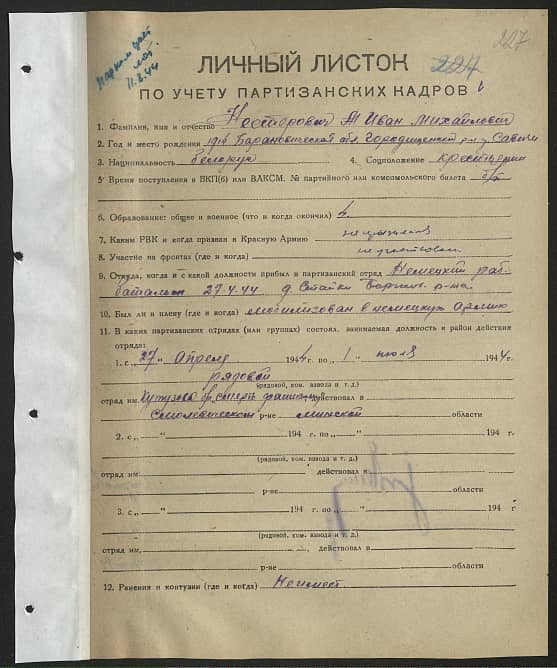 227
11.8.44
ЛИЧНЫЙ ЛИСТОК 227
ПО УЧЕТУ ПАРТИЗАНСКИХ КАДРОВ
1. Фамилия, имя и отчество Нестерович Иван Михайлович
2. Год и место рождения Барановическая обл. Городищенский р-н
3. Национальность белорус 4. Соцположение крестьянин
5. Время поступления в ВКП(б) или ВЛКСМ, № партийного или комсомольского билета б/п
6. Образование: общее и военное (что и когда окончил) 4
7. Каким РВК и когда призван в Красную Армию не призывался
8. Участие на фронтах (где и когда) не участвовал
9. Откуда, когда и с какой должности прибыл в партизанский отряд Немецкий раб.
батальон 27.4.44 д. Стайки р-на
10. Был ли в плену (где и когда) мобилизован в немецкую армию
11. В каких партизанских отрядах (или группах) состоял, занимаемая должность и район действия
отряда:
1. с „27 " Апреля 1944 г. по „ 1 " июля 1944 г.
рядовой
(рядовой, ком. взвода и т. д.)
отряд им. Кутузова бр. смерть действовал в
Смолевичском р-не минской области
2. с „ " 194 г. по „ " 194 г.
(рядовой, ком. взвода и т. д.)
отряд им. действовал в
р-не области
3. с „ " 194 г. по „ " 194 г.
(рядовой, ком. взвода и т. д.)
отряд им. действовал в
р-не области
12. Ранения и контузии (где и когда) Не имеет